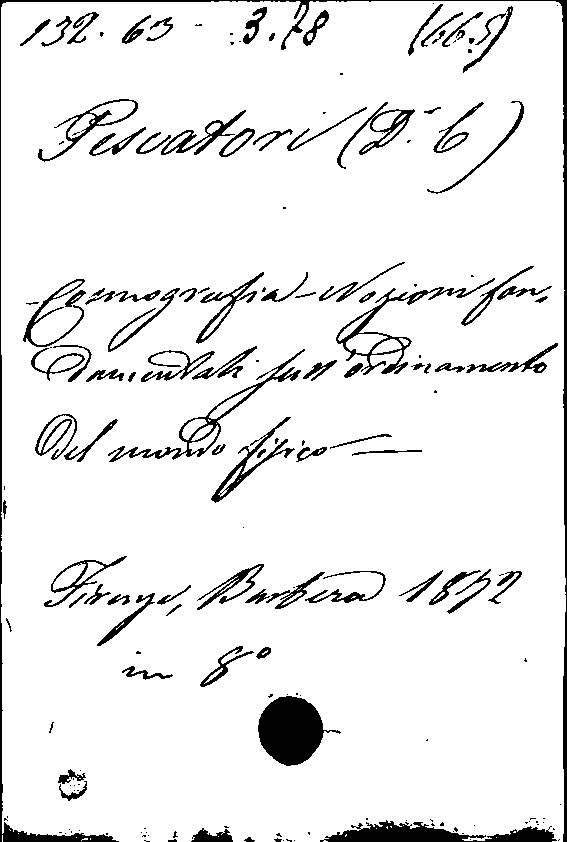 132. 63 - 3.78 (66.5)
Pescatori (Dr. C)
Cosmografia - Nozioni fon-
damentali sull'ordinamento
del mondo fisico —
Firenze, Barbera 1872
in 8º